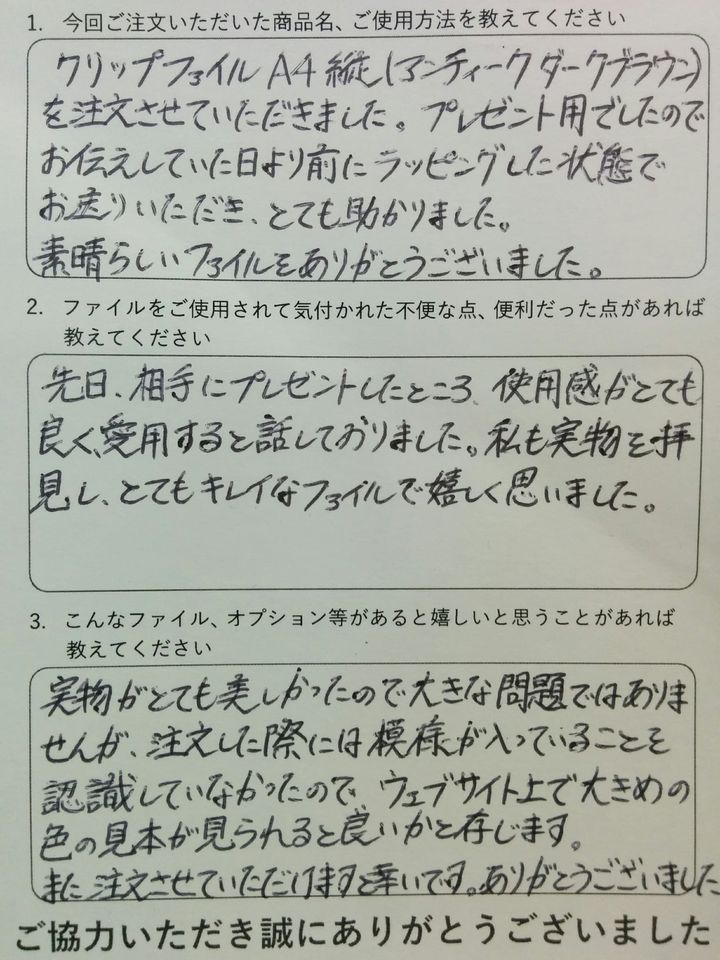 1. 今回ご注文いただいた商品名、ご使用方法を教えてください
クリップファイルA4縦(アンティークダークブラウン)
を注文させていただきました。プレゼント用でしたので
お伝えしていた日より前にラッピングした状態で
お送りいただき、とても助かりました。
素晴らしいファイルをありがとうございました。
2. ファイルをご使用されて気付かれた不便な点、便利だった点があれば
教えてください
先日、相手にプレゼントしたところ、使用感がとても
良く、愛用すると話しておりました。私も実物を拝
見し、とてもキレイなファイルで嬉しく思いました。
3. こんなファイル、オプション等があると嬉しいと思うことがあれば
教えてください
実物がとても美しかったので大きな問題ではありま
せんが、注文した際には模様が入っていることを
認識していなかったので、ウェブサイト上で大きめの
色の見本が見られると良いかと存じます。
また注文させていただけますと幸いです。ありがとうございました
ご協力いただき誠にありがとうございました